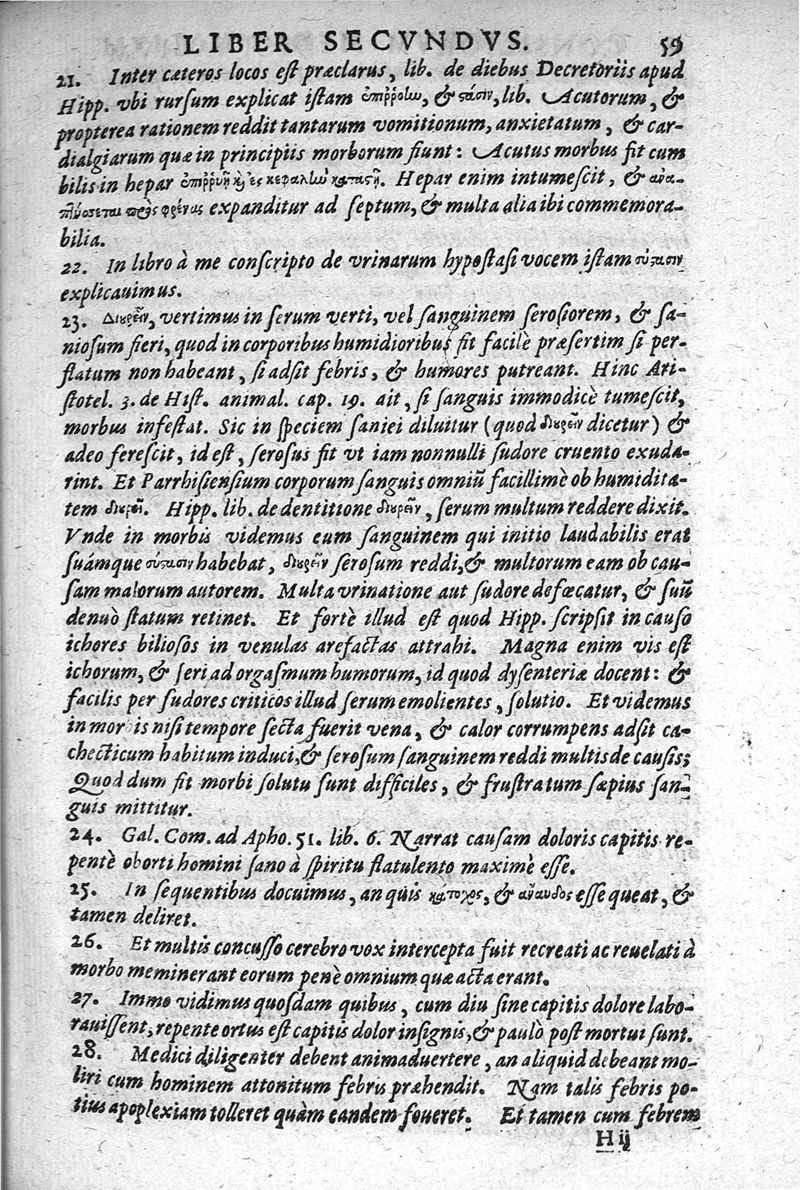 LIBER SECVNDVS. 59
21. Inter cæteros locos est præclarus, lib. de diebus Decretoriis apud
Hipp. vbi rursum explicat istam ἐπιῤῥοίω, & στάσιν, lib. Acutorum, &
propterea rationem reddit tantarum vomitionum, anxietatum, & car-
dialgiarum quæ in principiis morborum fiunt: Acutus morbus fit cum
bilis in hepar ἐπιῤῥυῆ κ̀ ἐς κεφαλὼ καταςῆ. Hepar enim intumescit, & ἀνα-
πλύοσεται πρὸς φρένας expanditur ad septum, & multa alia ibi commemora-
bilia.
22. In libro à me conscripto de vrinarum hypostasi vocem istam σύςασιν
explicauimus.
23. Διουρεῖν, vertimus in serum verti, vel sanguinem serosiorem, & sa-
niosum fieri, quod in corporibus humidioribus fit facilè præsertim si per-
flatum non habeant, si adsit febris, & humores putreant. Hinc Ari-
stotel. 3. de Hist. animal. cap. 19. ait, si sanguis immodicè tumescit,
morbus infestat. Sic in speciem saniei diluitur (quod διουρεῖν dicetur) &
adeo ferescit, id est, serosus fit vt iam nonnulli sudore cruento exuda-
rint. Et Parrhisiensium corporum sanguis omniũ facillimè ob humidita-
tem διουρεῖ. Hipp. lib. de dentitione διουρεῖν, serum multum reddere dixit.
Vnde in morbis videmus eum sanguinem qui initio laudabilis erat
suámque σύςασιν habebat, διουρεῖν serosum reddi, & multorum eam ob cau-
sam malorum autorem. Multa vrinatione aut sudore defœcatur, & suũ
denuò statum retinet. Et fortè illud est quod Hipp. scripsit in causo
ichores biliosos in venulas arefactas attrahi. Magna enim vis est
ichorum, & seri ad orgasmum humorum, id quod dysenteriæ docent: &
facilis per sudores criticos illud serum emolientes, solutio. Et videmus
in morbis nisi tempore secta fuerit vena, & calor corrumpens adsit ca-
checticum habitum induci, & serosum sanguinem reddi multis de causis;
Quod dum fit morbi solutu sunt difficiles, & frustratum sæpius san-
guis mittitur.
24. Gal. Com. ad Apho. 51. lib. 6. Narrat causam doloris capitis re-
pentè oborti homini sano à spiritu flatulento maximè esse.
25. In sequentibus docuimus, an quis κάτοχος, & ἄναυδος esse queat, &
tamen deliret.
26. Et multis concusso cerebro vox intercepta fuit recreati ac reuelati à
morbo meminerant eorum penè omnium quæ acta erant.
27. Immo vidimus quosdam quibus, cum diu sine capitis dolore labo-
rauissent, repente ortus est capitis dolor insignis, & paulò post mortui sunt.
28. Medici diligenter debent animaduertere, an aliquid debeant mo-
liri cum hominem attonitum febris præhendit. Nam talis febris po-
tius apoplexiam tolleret quàm eandem foueret. Et tamen cum febrem
H ij